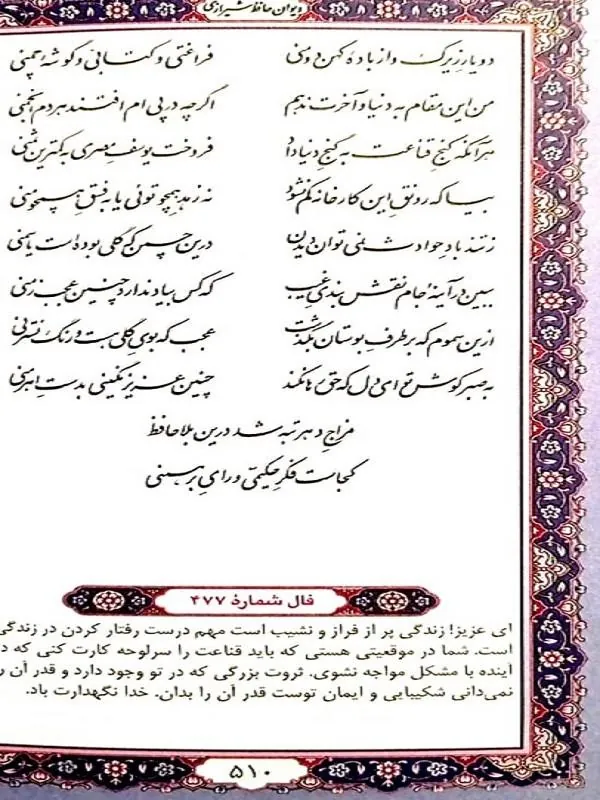 دیوان حافظ شیرازی
دو یار زیرک و از بادهٔ کهن دو منی فراغتی و کتابی و گوشهٔ چمنی
من این مقام به دنیا و آخرت ندهم اگرچه در پی ام افتند هر دم انجمنی
هر آنکه کنج قناعت به گنج دنیا داد فروخت یوسف مصری به کمترین ثمنی
بیا که رونق این کارخانه کم نشود نه زهد همچو توئی یا به فسق همچو منی
ز تند باد حوادث نمی توان دیدن درین چمن که گلی بوده است یا سمنی
ببین در آینهٔ جام نقش بندی غیب که کس بیاد ندارد چنین عجب زمنی
ازین سموم که بر طرف بوستان بگذشت عجب که بوی گلی هست و رنگ نسترنی
به صبر کوش تو ای دل که حق رها نکند چنین عزیز نگینی بدست اهرمنی
مزاج دهر تبه شد درین بلا حافظ
کجاست فکر حکیمی و رای برهمنی
فال شمارهٔ ۴۷۷
ای عزیز! زندگی پر از فراز و نشیب است مهم درست رفتار کردن در زندگی
است. شما در موقعیتی هستی که باید قناعت را سرلوحه کارت کنی که د
آینده با مشکل مواجه نشوی. ثروت بزرگی که در تو وجود دارد و قدر آن ر
نمی‌دانی شکیبایی و ایمان توست قدر آن را بدان. خدا نگهدارت باد.
۵۱۰